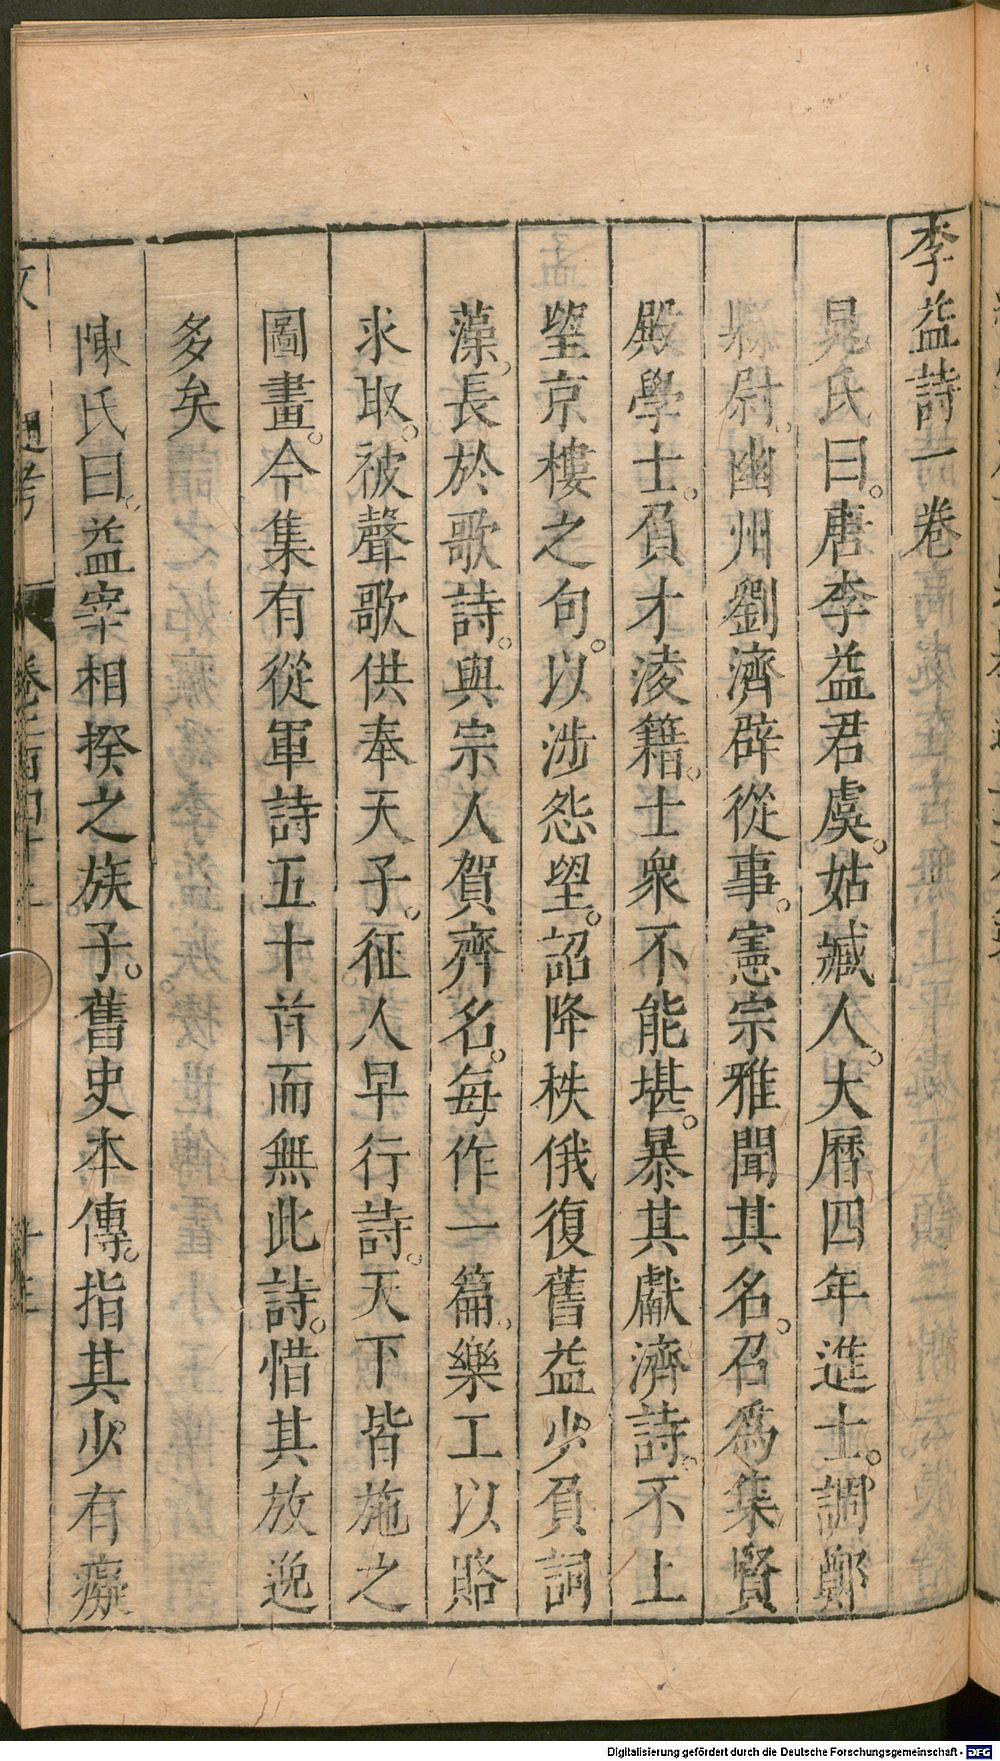 李益詩一卷
晁氏曰。唐李益君虞。姑臧人。大曆四年進士。調鄭
縣尉。幽州劉濟辟從事。憲宗雅聞其名。召爲集賢
殿學士。負才淩籍。士衆不能堪。暴其獻濟詩。不上
望京樓之句。以涉怨望。詔降秩俄復舊益少負詞
藻。長於歌詩。與宗人賀齊名。每作一篇。樂工以賂
求取。被聲歌供奉天子。征人早行詩。天下皆施之
圖畫。今集有從軍詩五十首而無此詩。惜其放逸
多矣
陳氏曰。益宰相揆之族子。舊史本傳。指其少有癡
通考
卷二百四十二
Digitalisierung gefördert durch die Deutsche Forschungsgemeinschaft - DFG